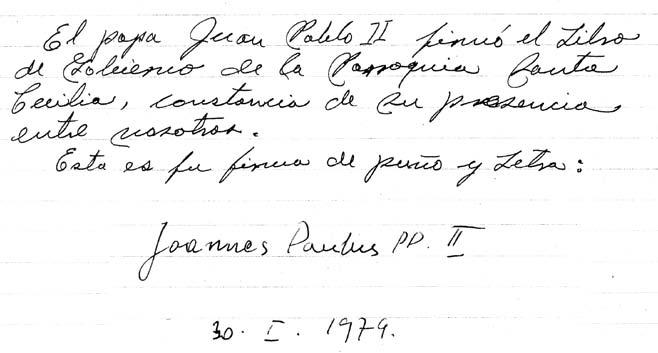 El papa Juan Pablo II firmó el Libro
de Gobierno de la Parroquia Santa
Cecilia, constancia de su presencia
entre nosotros.
Esta es su firma de puño y Letra:
Joannes Paulus PP. II
30. I. 1979.